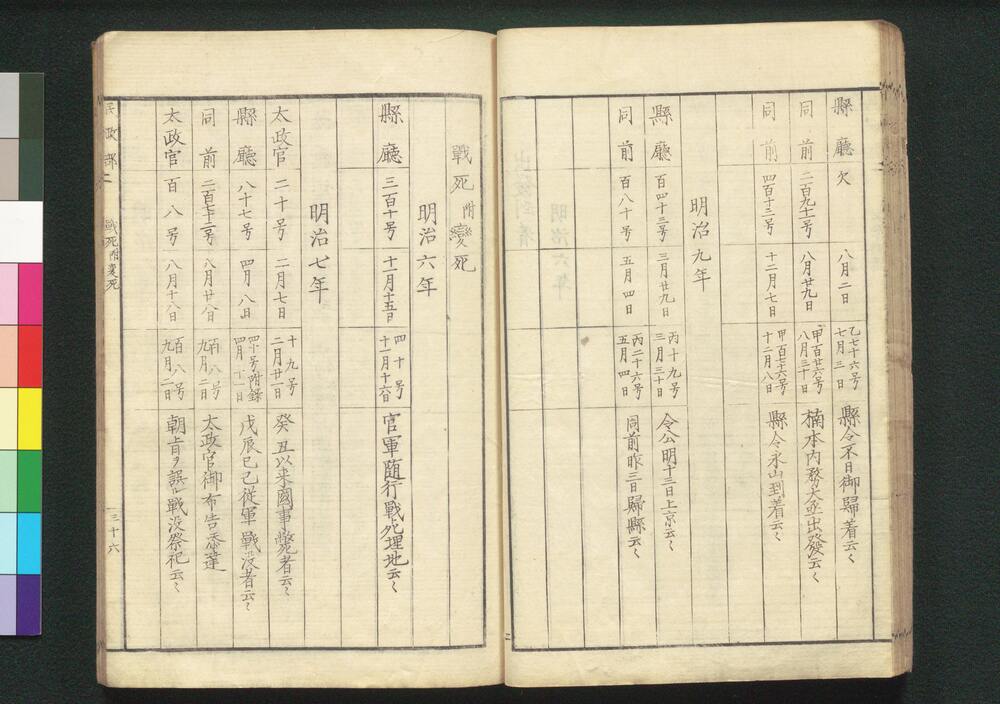 縣廳 欠 八月二日 乙七十六号 七月三日 縣令不日御歸着云々
同前 二百九十一号 八月廿九日 甲百廿六号 八月三十日 楠本内務大丞出發云々
同前 四百十三号 十二月七日 甲百七十六号 十二月八日 縣令永山到着云々
明治九年
縣廳 百四十三号 三月廿九日 丙十九号 三月三十日 令公明十三日上京云々
同前 百八十号 五月四日 丙二十六号 五月四日 同前昨三日歸縣云々
戰死附變死
明治六年
縣廳 三百十号 十一月十五日 四十号 十一月十六日 官軍随行戰死埋地云々
明治七年
太政官 二十号 二月七日 十九号 二月廿一日 癸丑以来國事斃者云々
縣廳 八十七号 四月八日 四十号附錄 四月十一日 戊辰己巳従軍戰没者云々
同前 二百七十三号 八月廿八日 百八号 九月二日 太政官御布告添達
太政官 百八号 八月十八日 百八号 九月二日 朝旨ヲ誤レ戰没祭祀云々
民政部二 戰死附変死 三十六